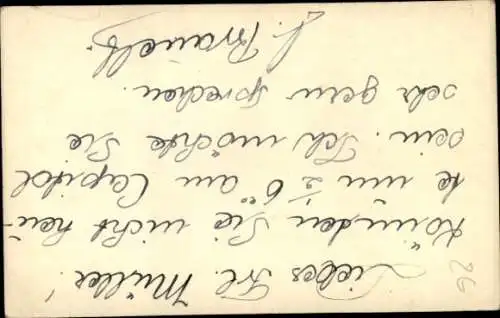 Liebes Frl. Müller!
Können Sie nicht heu-
te um ½ 6 00 am Capitol
sein. Ich möchte Sie
sehr gern sprechen.
26